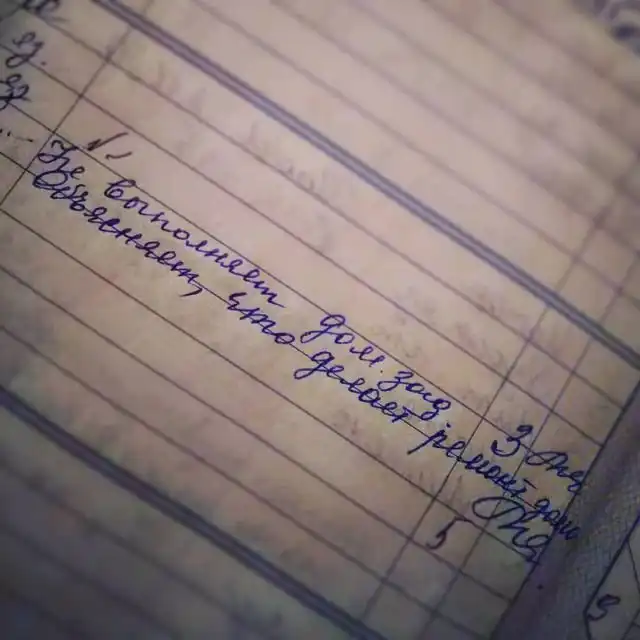 Не выполняет дом. зад.
Объясняет, что делает ремонт дома